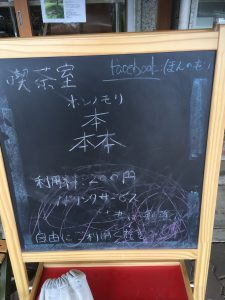 喫茶室
facebook:ほんのもり
ホンノモリ
本
本本
利用料:200円
1ドリンクサービス
自由にご利用